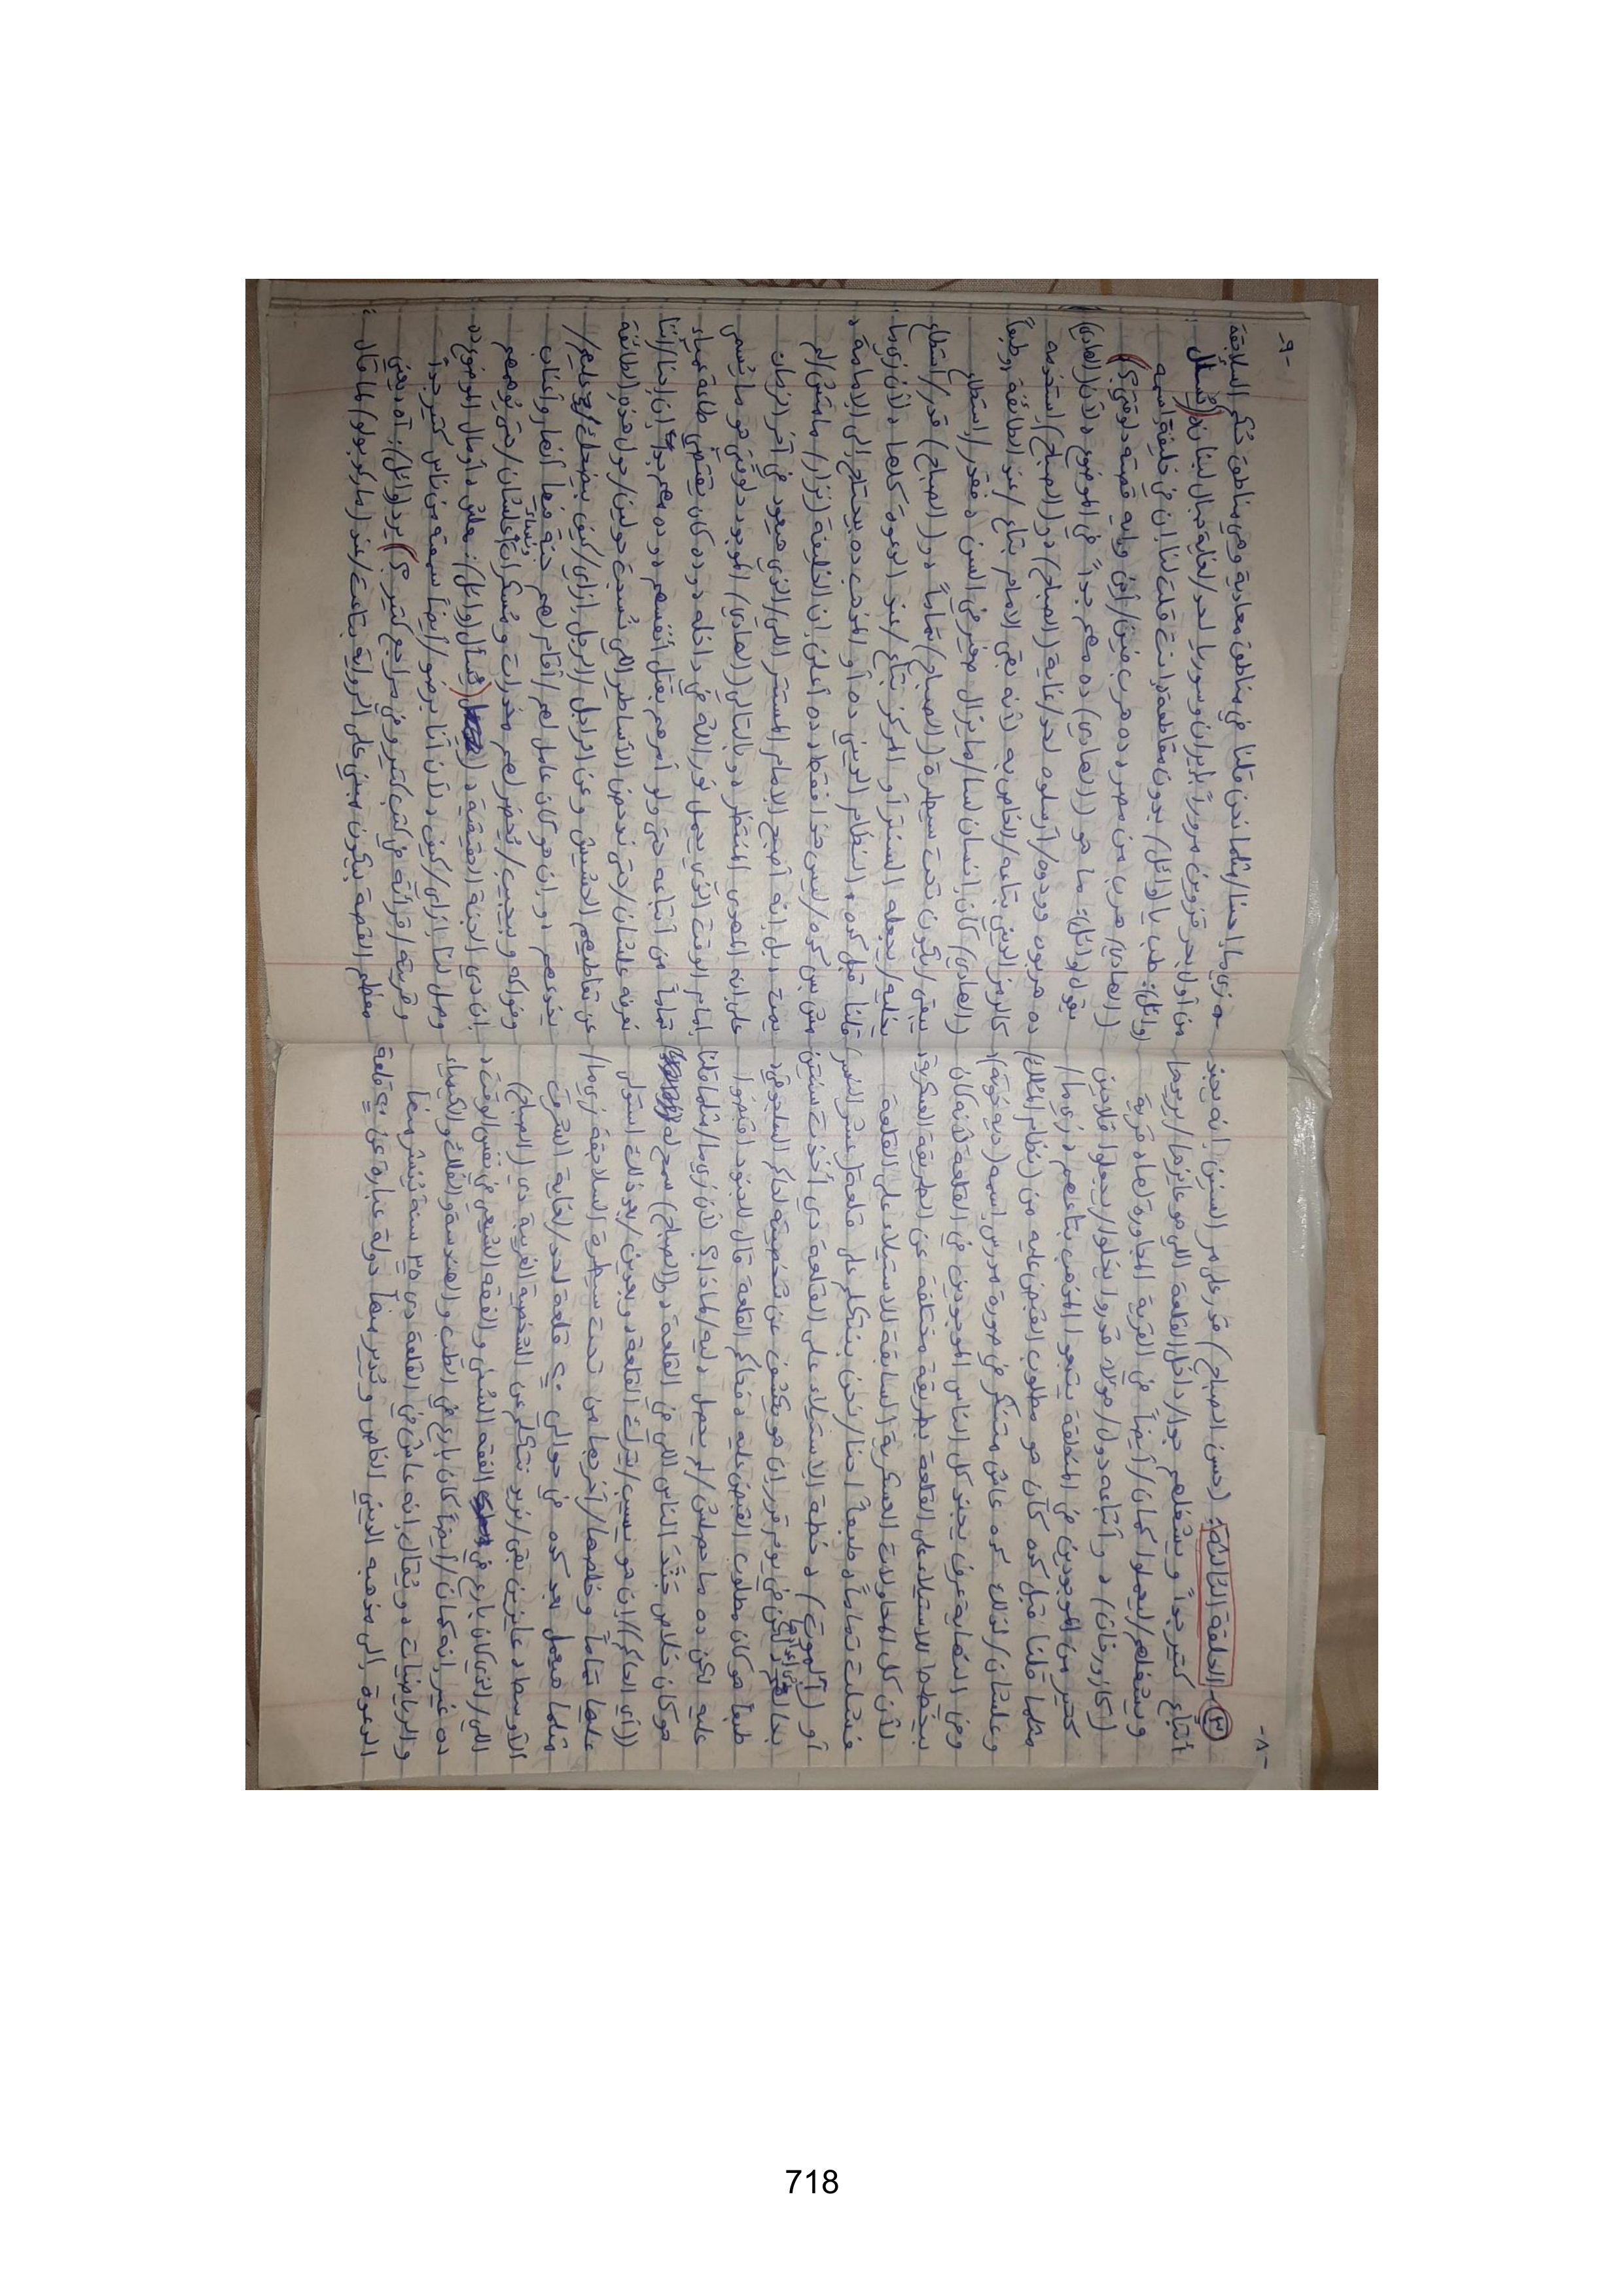 -٨-
(٣) الحلقة الثالثة: (حسن الصباح) قدر على مر السنين إنه يجند
أتباع كتير جداً ويشغلهم جوا/داخل القلعة اللي هو عايزها/يريدها
ويشغلهم/ليعملوا كمان/أيضاً في القرية المجاورة لها، قرية
(كازورخان)، وأتباعه دول/هؤلاء قدروا يخلوا/يجعلوا فلاحين
كتير من الموجودين في المنطقة يتبعوا المذهب بتاعهم، زي ما/
مثلما قلنا قبل كده كان هو مطلوب القبض عليه من (نظام الملك)
وعلشان/لذلك كده عاش متنكر في صورة مدرس اسمه (ديه خودا)،
وفي النهاية عرف يجند كل الناس الموجودين في القلعة لأنه كان
بيخطط للاستيلاء على القلعة بطريقة مختلفة عن الطريقة العسكرية،
لأن كل المحاولات العسكرية السابقة للاستيلاء على القلعة
فشلت تماماً، طبعاً احنا/نحن بنتكلم على قلعة (عش النسر)
أو (ألموت)، خطة الاستيلاء على القلعة دي أخذت سنتين
لكن في يوم قرر إن هو يكشف عن شخصيته لحاكم
طبعاً هو كان مطلوب القبض عليه، فحاكم القلعة قال للجنود اقبضوا
عليه لكن ده ما حصلش/لم يحصل، ليه/لماذا؟ لأن زي ما/مثلما قلنا
هو كان خلاص جنّد الناس اللي في القلعة، و(الصباح) سمح له
((أي الحاكم)) إن هو يسيب/يترك القلعة، وبعدين/بعد ذلك استولى
عليها تماماً وخلصها/أخرجها من تحت سيطرة السلاجقة زي ما/
مثلما هيعمل بعد كده في حوالي ٢٠ قلعة لحد/لغاية الشرق
الأوسط، عايزين بقى/نريد نتكلم عن الشخصية الغريبة دي (الصباح)
اللي/الذي كان بارع في الفقه السُني والفقه الشيعي في نفس الوقت،
ده غير إنه كمان/أيضاً كان بارع في الطب والهندسة والفلك والكيمياء
والرياضيات، ويُقال إنه عاش في القلعة دي ٣٥ سنة يُنشر منها
الدعوة إلى مذهبه الديني الخاص ويُدير منها دولة عبارة عن قلعة
-٩-
زي ما احنا/مثلما نحن قلنا في مناطق معادية وهي مناطق حُكم السلاجقة
من أول بحر قزوين مروراً بإيران وسوريا لحد/لغاية جبال لبنان، (يُسأل
(وائل): طب يا (وائل) بدون مقاطعة، انت قلت لنا إن في خليفة اسمه
(الهادي) هرب من مصر، ده هرب فين/أين وايه قصته دلوقتي؟)
يقول (وائل): ما هو ((الهادي)) ده مهم جداً في الموضوع، لأن (الهادي)
ده هربوه وودوه/أرسلوه لحد/غاية (الصباح)، و(الصباح) استخدمه
كالرمز الديني بتاعه/الخاص به، لأنه بقى الإمام بتاع/عند الطائفة، وطبعاً
(الهادي) كان إنسان لسا/ما يزال صغير في السن، فقدر/استطاع
يبقى/ليكون تحت سيطرة (الصباح) تماماً، و(الصباح) قدر/استطاع
يخليه/يجعله السنتر أو المركز بتاع/عند الدعوة كلها، لأن زي ما
قلنا قبل كده، النظام الديني ده أو المذهب ده بيحتاج إلى الإمامة،
مش بس كده/ليس هذا فقط، ده أعلن إن الخليفة (نزار) ما متش/لم
يمت، بل إنه أصبح الإمام المستتر اللي/الذي هيعود في آخر الزمان
على إنه المهدي المنتظر، وبالتالي (الهادي) الموجود دلوقتي هو ما يُسمى
إمام الوقت الذي يحمل نور الله في داخله، وده كان يقتضي طاعة عمياء
تماماً من أتباعه حتى ولو أمرهم بقتل أنفسهم، وده مهم جداً إن إحنا/إننا
نعرفه علشان/حتى ندحض الأساطير اللي نُسجت حولين/حول هذه الطائفة
عن تعاطيهم الحشيش وعن الراجل/الرجل إزاي/كيف بيضحك عليهم/
يخدعهم، وإن هو كان عامل لهم/أقام لهم جنة فيها أنهار وأعناب
وفواكه وبيجيب/يُحضر لهم مخدرات ومُسكرات ونساء علشان/حتى يوهمهم
إن دي الجنة الحقيقية، (يُسأل (وائل): معلش، أومال الموضوع ده
وصل لنا إزاي/كيف، لأن أنا برضو/أيضاً سمعته من ناس كتير جداً
وقريته/قرأته في كتب كتير وفي مراجع كتير؟) يرد (وائل): آه، يعني
معظم القصة بتكون مبني على الرواية بتاعت/عند (ماركو بولو) لما قال:
718